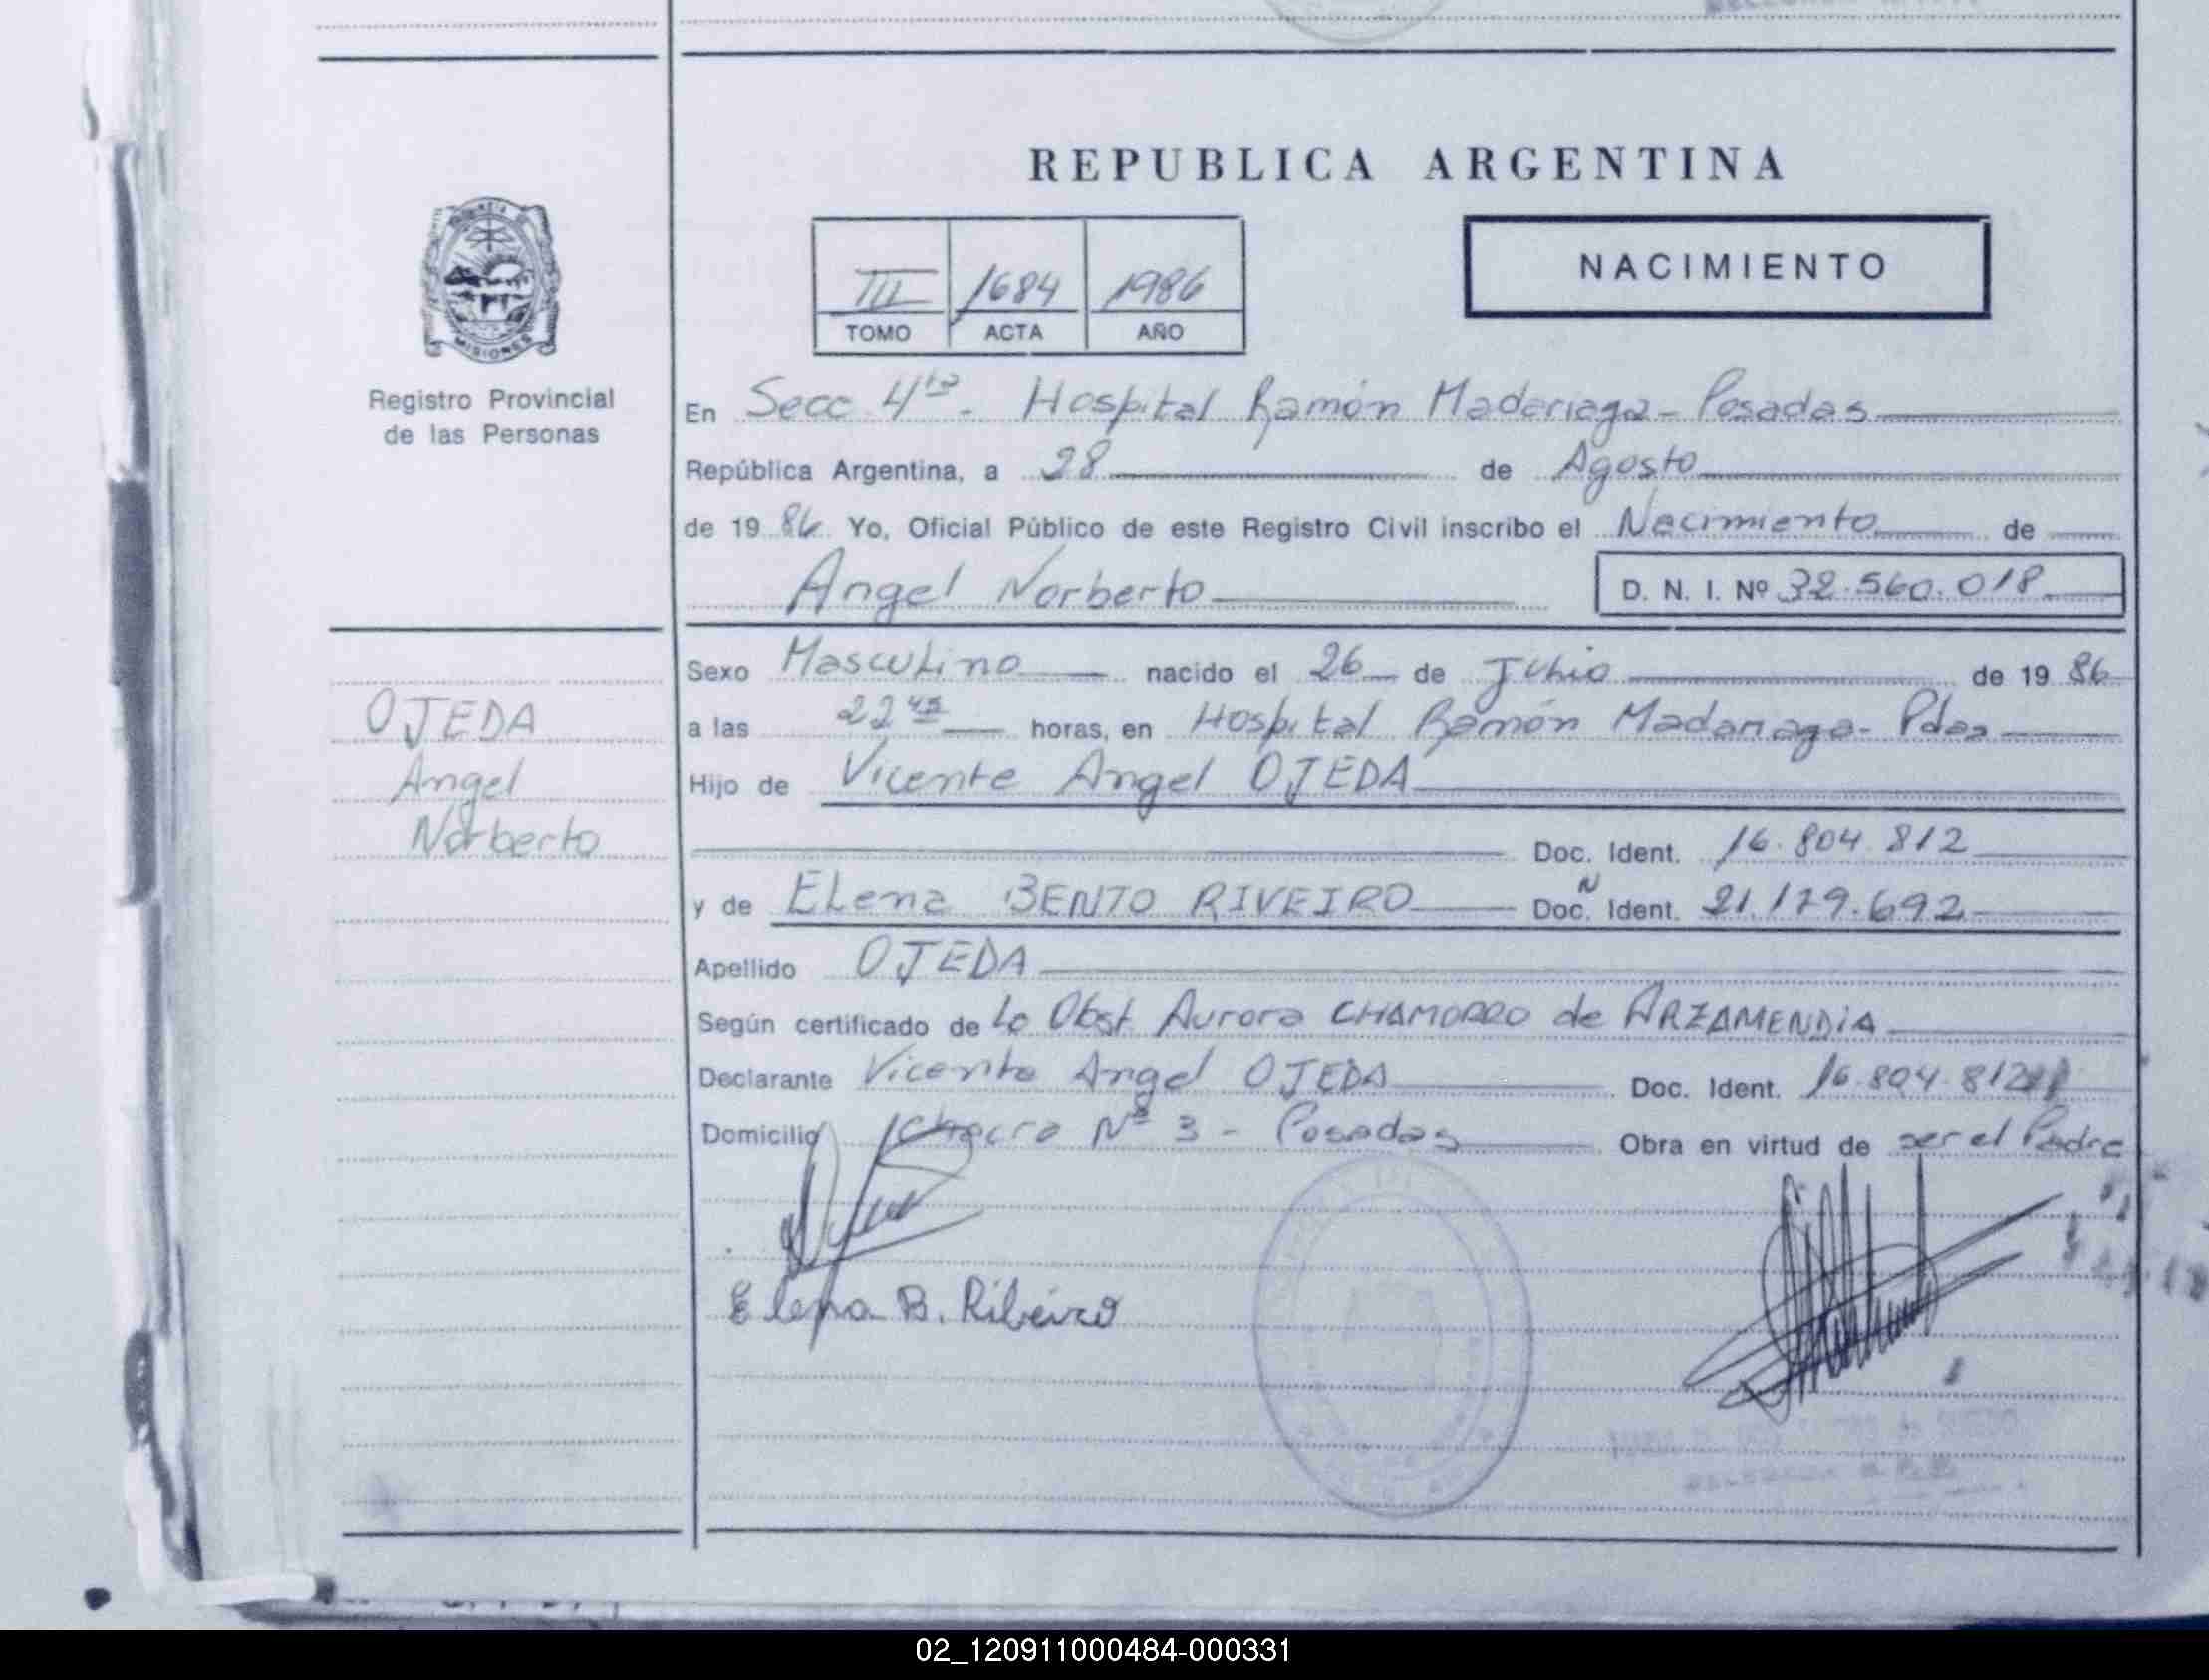 REPUBLICA ARGENTINA
NACIMIENTO
III 1684 1986
TOMO ACTA AÑO
MISIONES
Registro Provincial
de las Personas
En Secc 4ta - Hospital Ramón Madariaga - Posadas
República Argentina, a 28 de Agosto
de 1986 Yo, Oficial Público de este Registro Civil inscribo el Nacimiento de
Angel Norberto D. N. I. Nº 32.560.018
OJEDA
Angel
Norberto
Sexo Masculino nacido el 26 de de 1986
a las 22 45 horas, en Hospital Ramón Madariaga - Pdas
Hijo de Vicente Angel OJEDA
Doc. Ident. 16.804.812
y de Elena BENTO RIVEIRO Doc. N Ident. 21.179.692
Apellido OJEDA
Según certificado de La Obst Aurora CHAMORRO de ARZAMENDIA
Declarante Vicente Angel OJEDA Doc. Ident. 16.804.812
Domicilio Chacra Nº 3 - Posadas Obra en virtud de ser el Padre
Elena B. Ribeiro
02_120911000484-000331